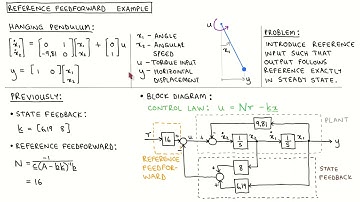 REFERENCE FEEDFORWARD EXAMPLE
HANGING PENDULUM:
[ẋ₁ ẋ₂] = [0 1 -9,81 0][x₁ x₂] + [0 1]u
y = [1 0][x₁ x₂]
x₁ - ANGLE
x₂ - ANGULAR
SPEED
u - TORQUE INPUT
y - HORIZONTAL
DISPLACEMENT
u
x₁
y
PROBLEM:
INTRODUCE REFERENCE
INPUT SUCH THAT
OUTPUT FOLLOWS
REFERENCE EXACTLY
IN STEADY STATE.
PREVIOUSLY:
• STATE FEEDBACK:
k = [6,19 8]
• REFERENCE FEEDFORWARD:
N = -1 / c(A-bk)⁻¹b
= 16
• BLOCK DIAGRAM:
CONTROL LAW: u = Nr - kx
PLANT
9,81
r
16
u
ẋ₂
1/s
x₂
ẋ₁
1/s
x₁
y
REFERENCE
FEEDFOR-
WARD
8
6,19
STATE
FEEDBACK